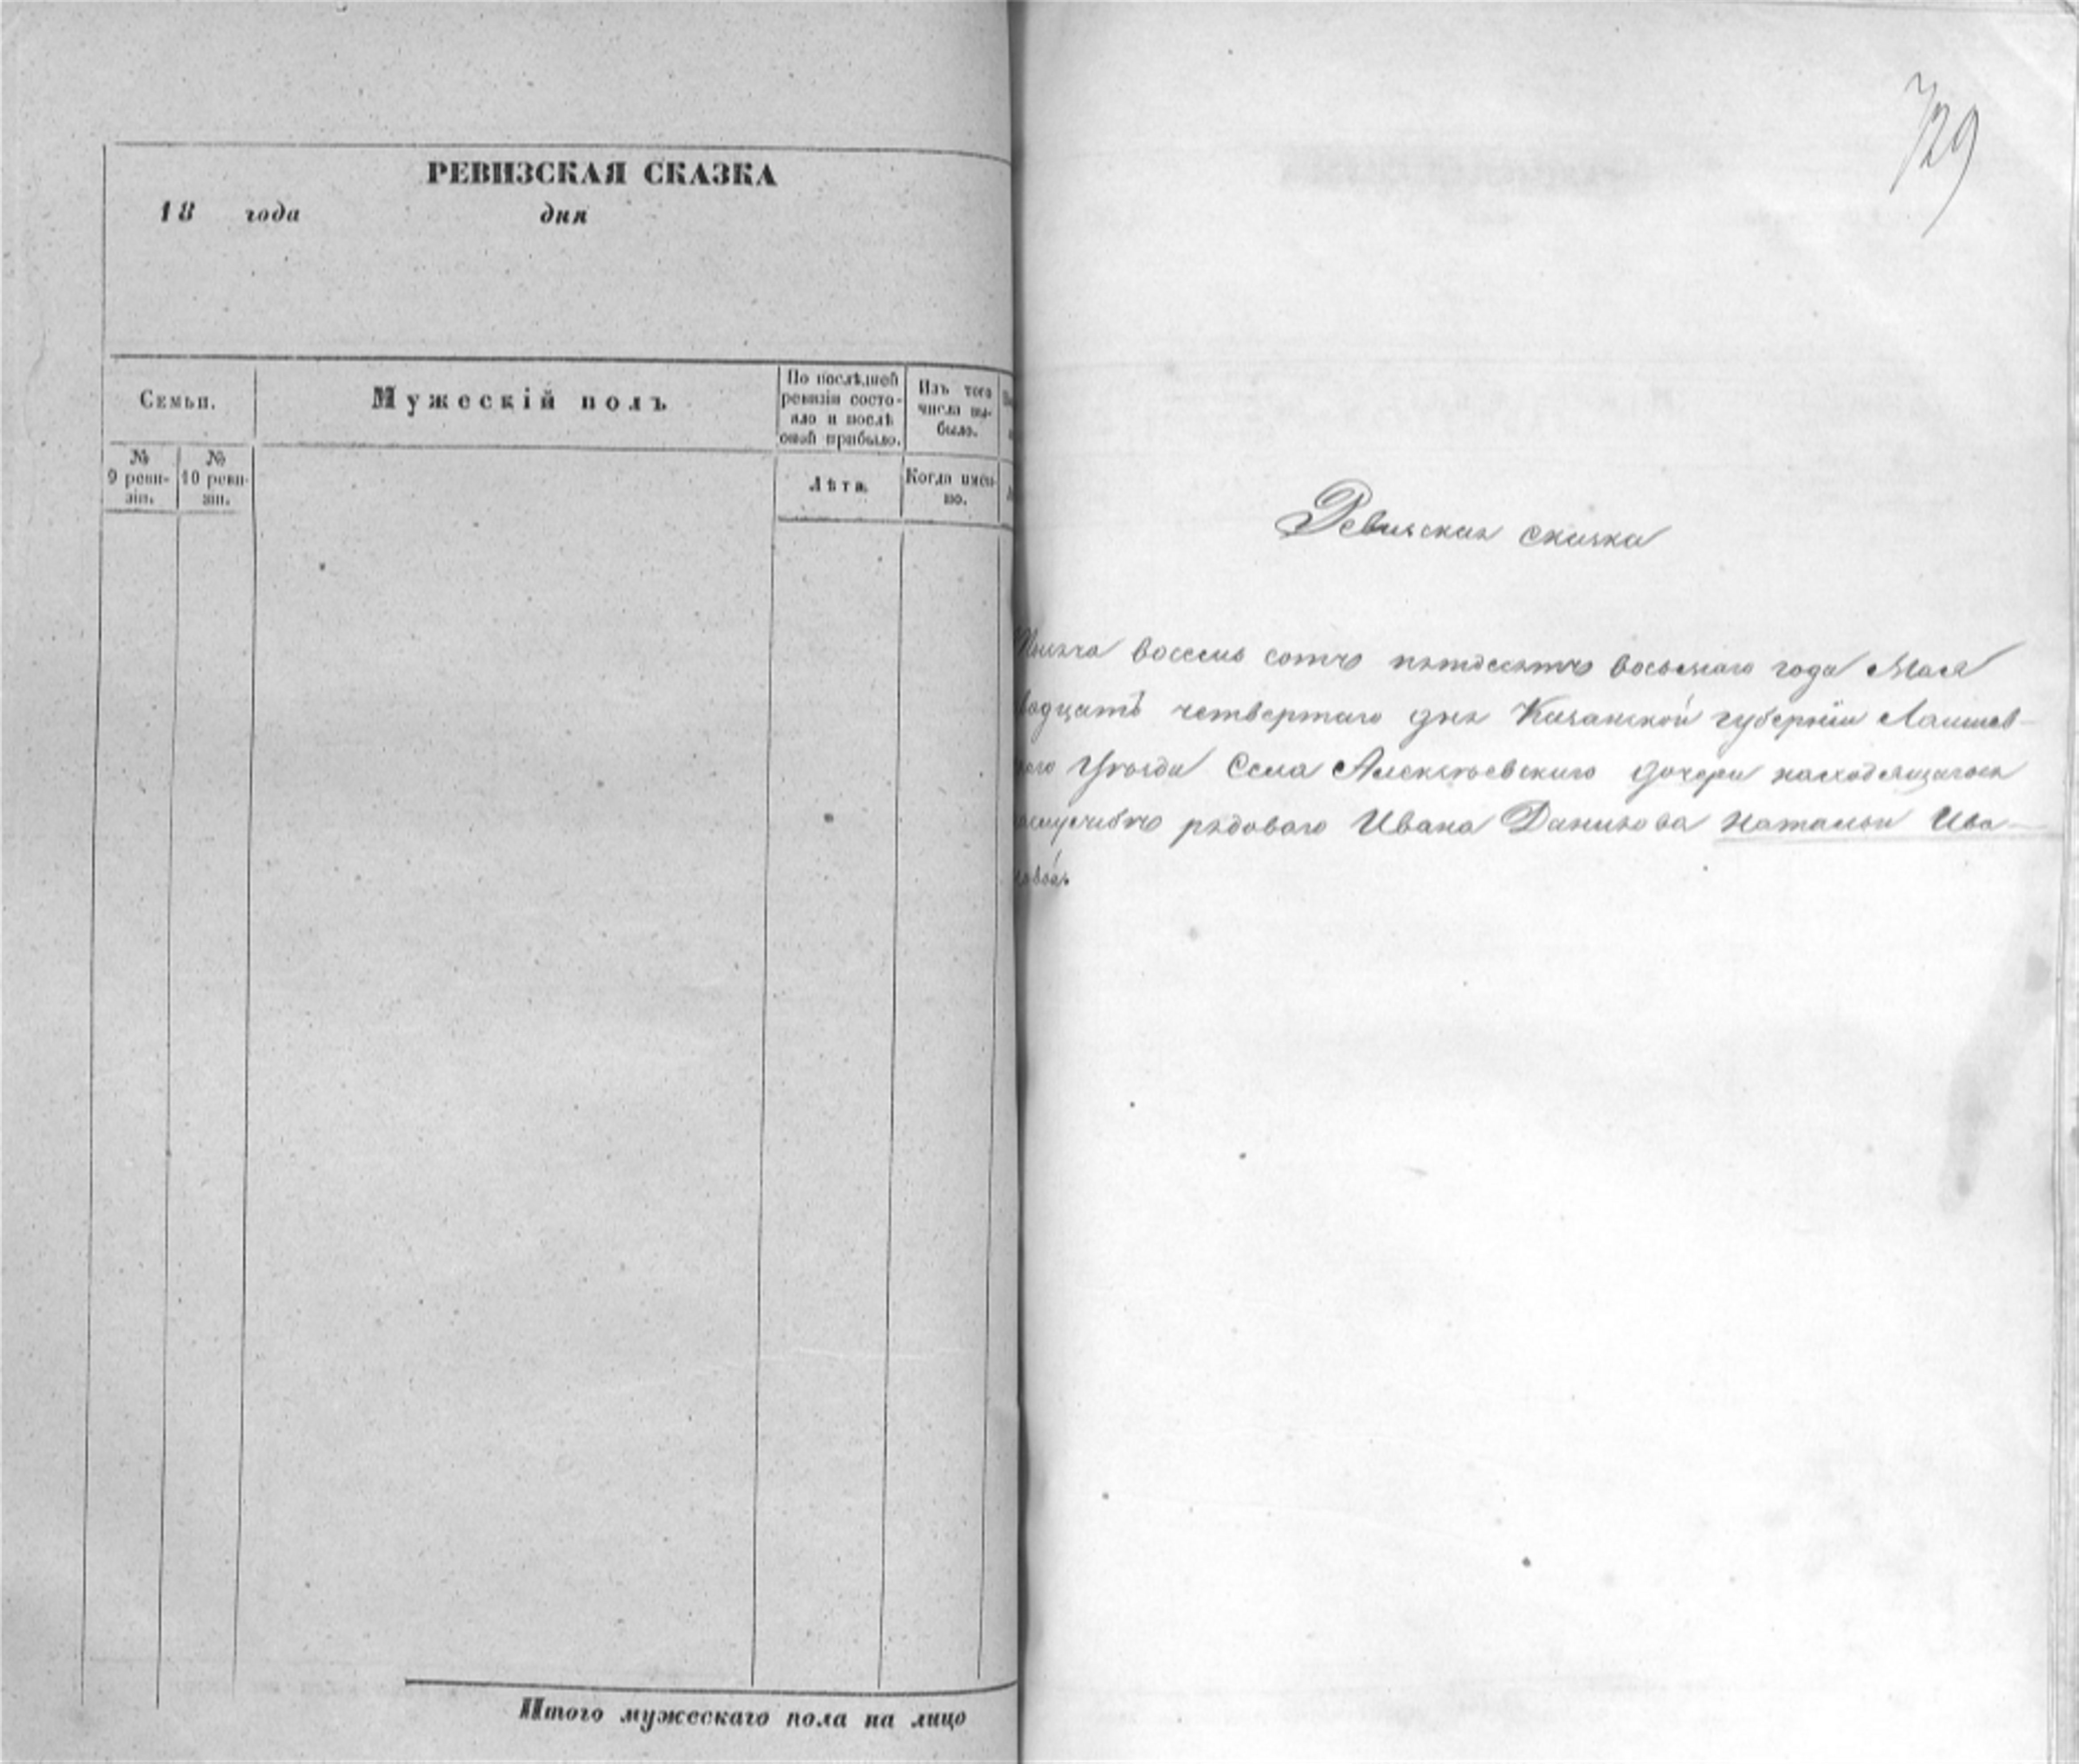 РЕВИЗСКАЯ СКАЗКА
18 года дня
Семьи.
Мужескій полъ
По послѣдней ревизіи состо-
яло и послѣ
оной прибыло.
Изъ того
числа вы-
было.
№
9 реви-
зіи.
№
10 реви-
зіи.
Лѣта.
Когда имен-
но.
Итого мужескаго пола на лицо
729
Ревизская сказка
Тысяча восемь сотъ пятдесятъ восьмаго года Мая
вадцать четвертаго дня Казанской губерніи Лаишев-
каго Уѣзда Села Алексѣевскаго дочери находящагося
рядоваго Ивана Данилова Натальи Ива-
новой.